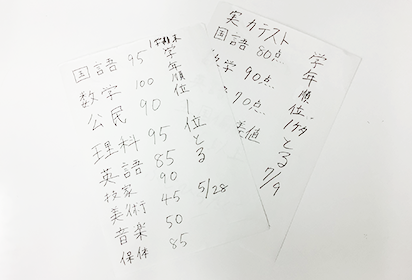 国語 95
数学 100
公民 90
理科 95
英語 85
技家 90
美術 45
音楽 50
保体 85
学年順位1位とる
5/28
実力テスト
国語 80点
数学 90点
70点
学年順位1ケタとる
7/9